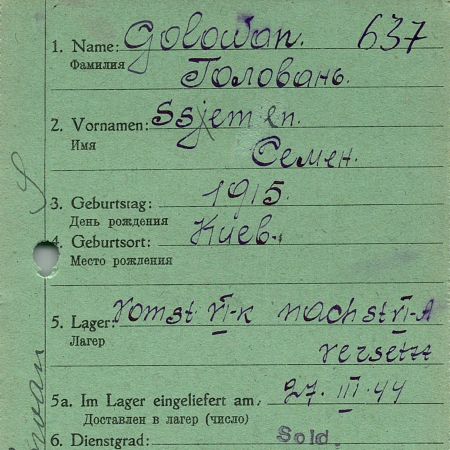 1. Name: Golowan. 637
Фамилия Головань.
2. Vornamen: Ssjemen.
Имя Семен.
3. Geburtstag: 1915.
День рождения
4. Geburtsort: Киев.
Место рождения
5. Lager: vomst VI-K nach st VI-A
Лагер versetzt
5a. Im Lager eingeliefert am: 27. III. 44
Доставлен в лагер (число)
6. Dienstgrad: Sold.